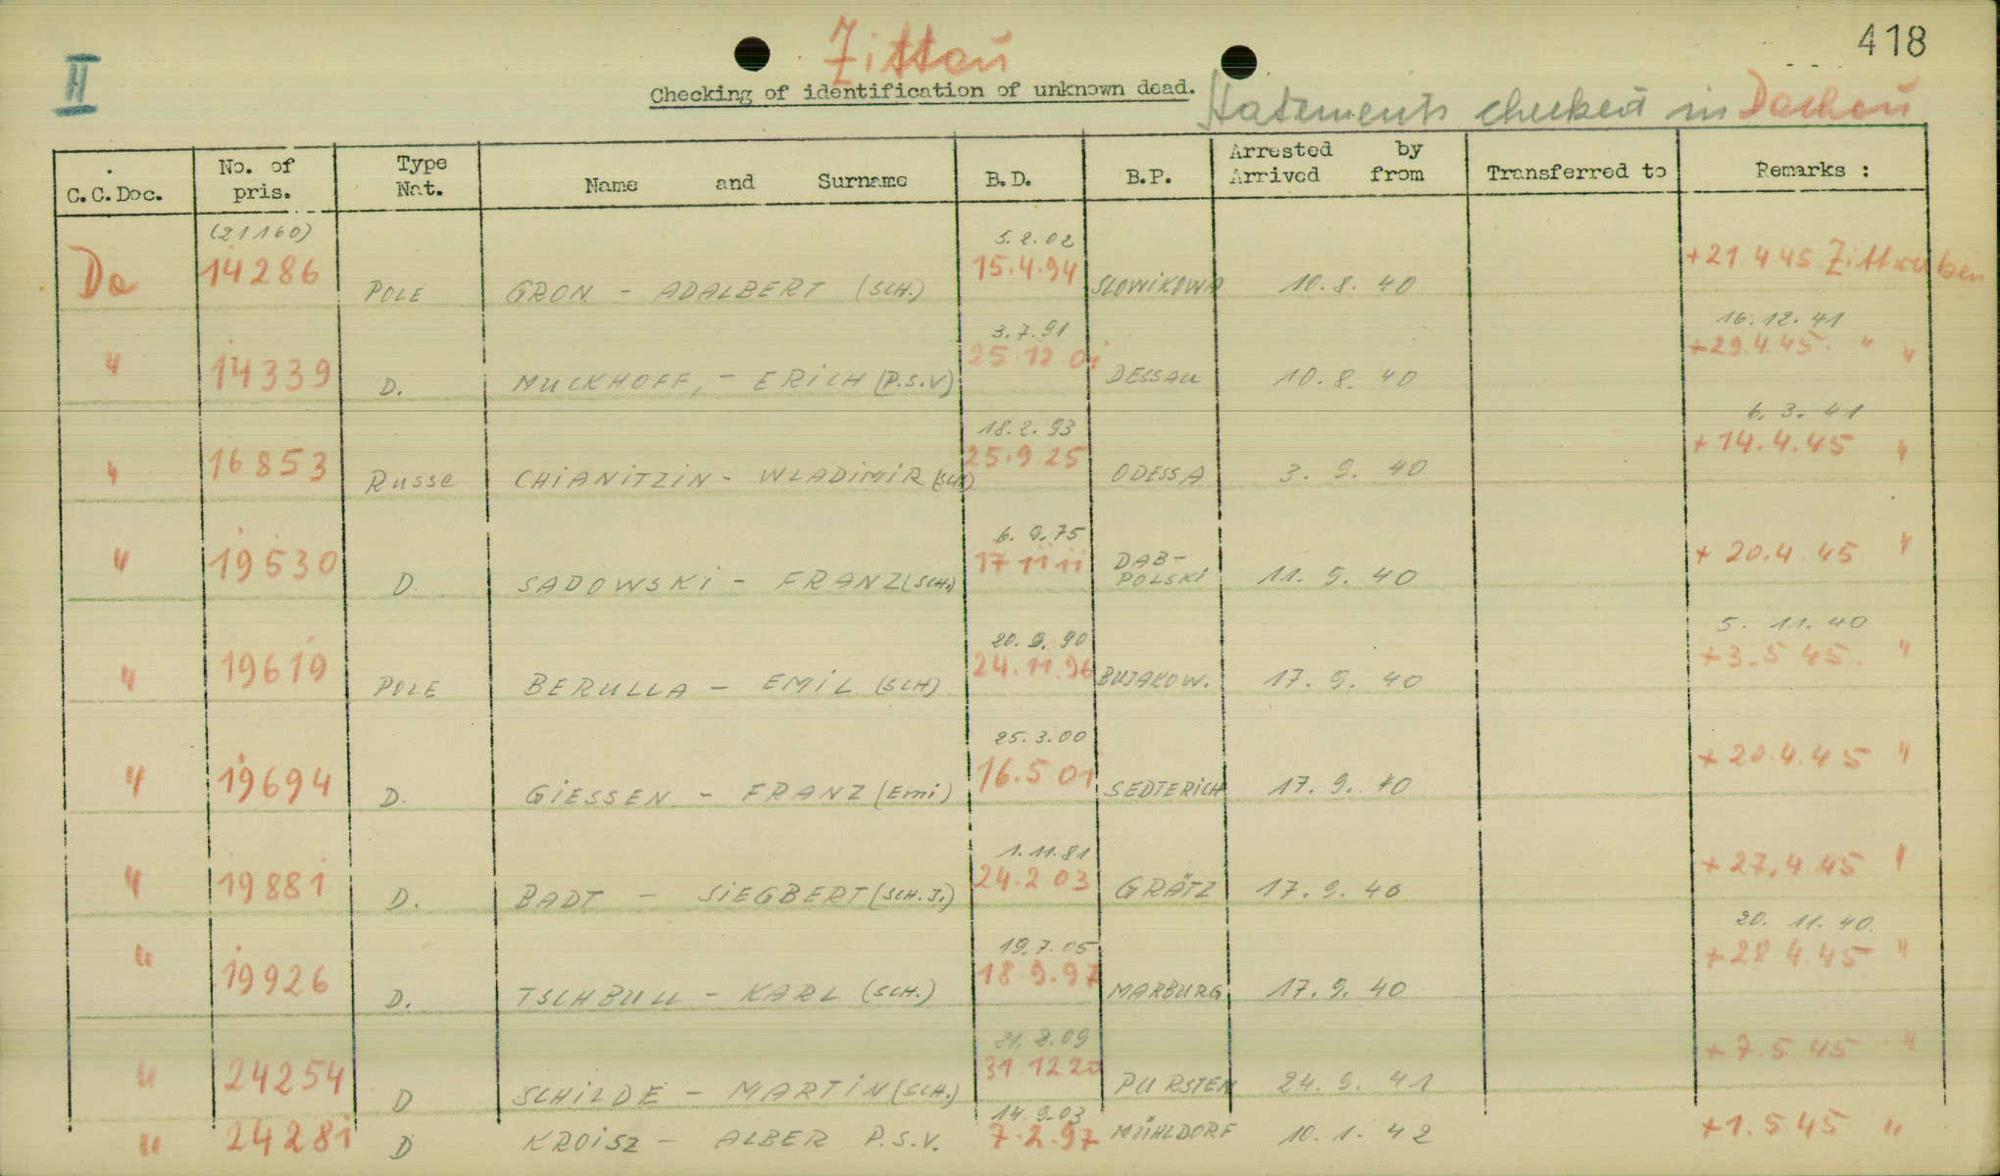 418
II
Zittau
Checking of identification of unknown dead.
Statements checked in Dachau
C.C.Doc.
No. of pris.
Type Nat.
Name and Surname
B.D.
B.P.
Arrested by
Arrived from
Transferred to
Remarks :
(21160) 5.2.02
Da 14286 POLE GRON - ADALBERT (SCH.) 15.4.94 SLOWIKOWA 10.8.40 +21 4 45 Zittau
3.7.91 16.12.41
" 14339 D. MUCKHOFF, - ERICH (P.S.V) 25 12 01 DESSAU 10.8.40 +29.4.45. " "
18.2.93 6.3.41
" 16853 Russe CHIANITZIN - WLADIMIR (SCH) 25.9 25 ODESSA 3.9.40 +14.4.45 "
6.9.75
" 19530 D. SADOWSKI - FRANZ (SCH.) 17 11 11 DAB-POLSKI 11.9.40 + 20.4.45 "
20.9.90 5.11.40
" 19619 POLE BERULLA - EMIL (SCH) 24.11.96 BUJAKOW. 17.9.40 +3.5 45. "
25.3.00
" 19694 D. GIESSEN - FRANZ (Emi) 16.5 01 SEDTERICH 17.9.40 +20.4.45 "
1.11.81
" 19881 D. BADT - SIEGBERT (SCH.J.) 24.2 03 GRÄTZ 17.9.40 +27.4 45 "
19.7.05 20.11.40
" 19926 D. TSCHBULL - KARL (SCH.) 18 9.97 MARBURG 17.9.40 +28 4.45 "
21.8.09
" 24254 D SCHILDE - MARTIN (SCH.) 31 12 20 PURSTEN 24.9.41 +7.5 45 "
14.9.03
" 24281 D KROISZ - ALBER P.S.V. 7.2.97 MÜHLDORF 10.1.42 +1.5 45 "